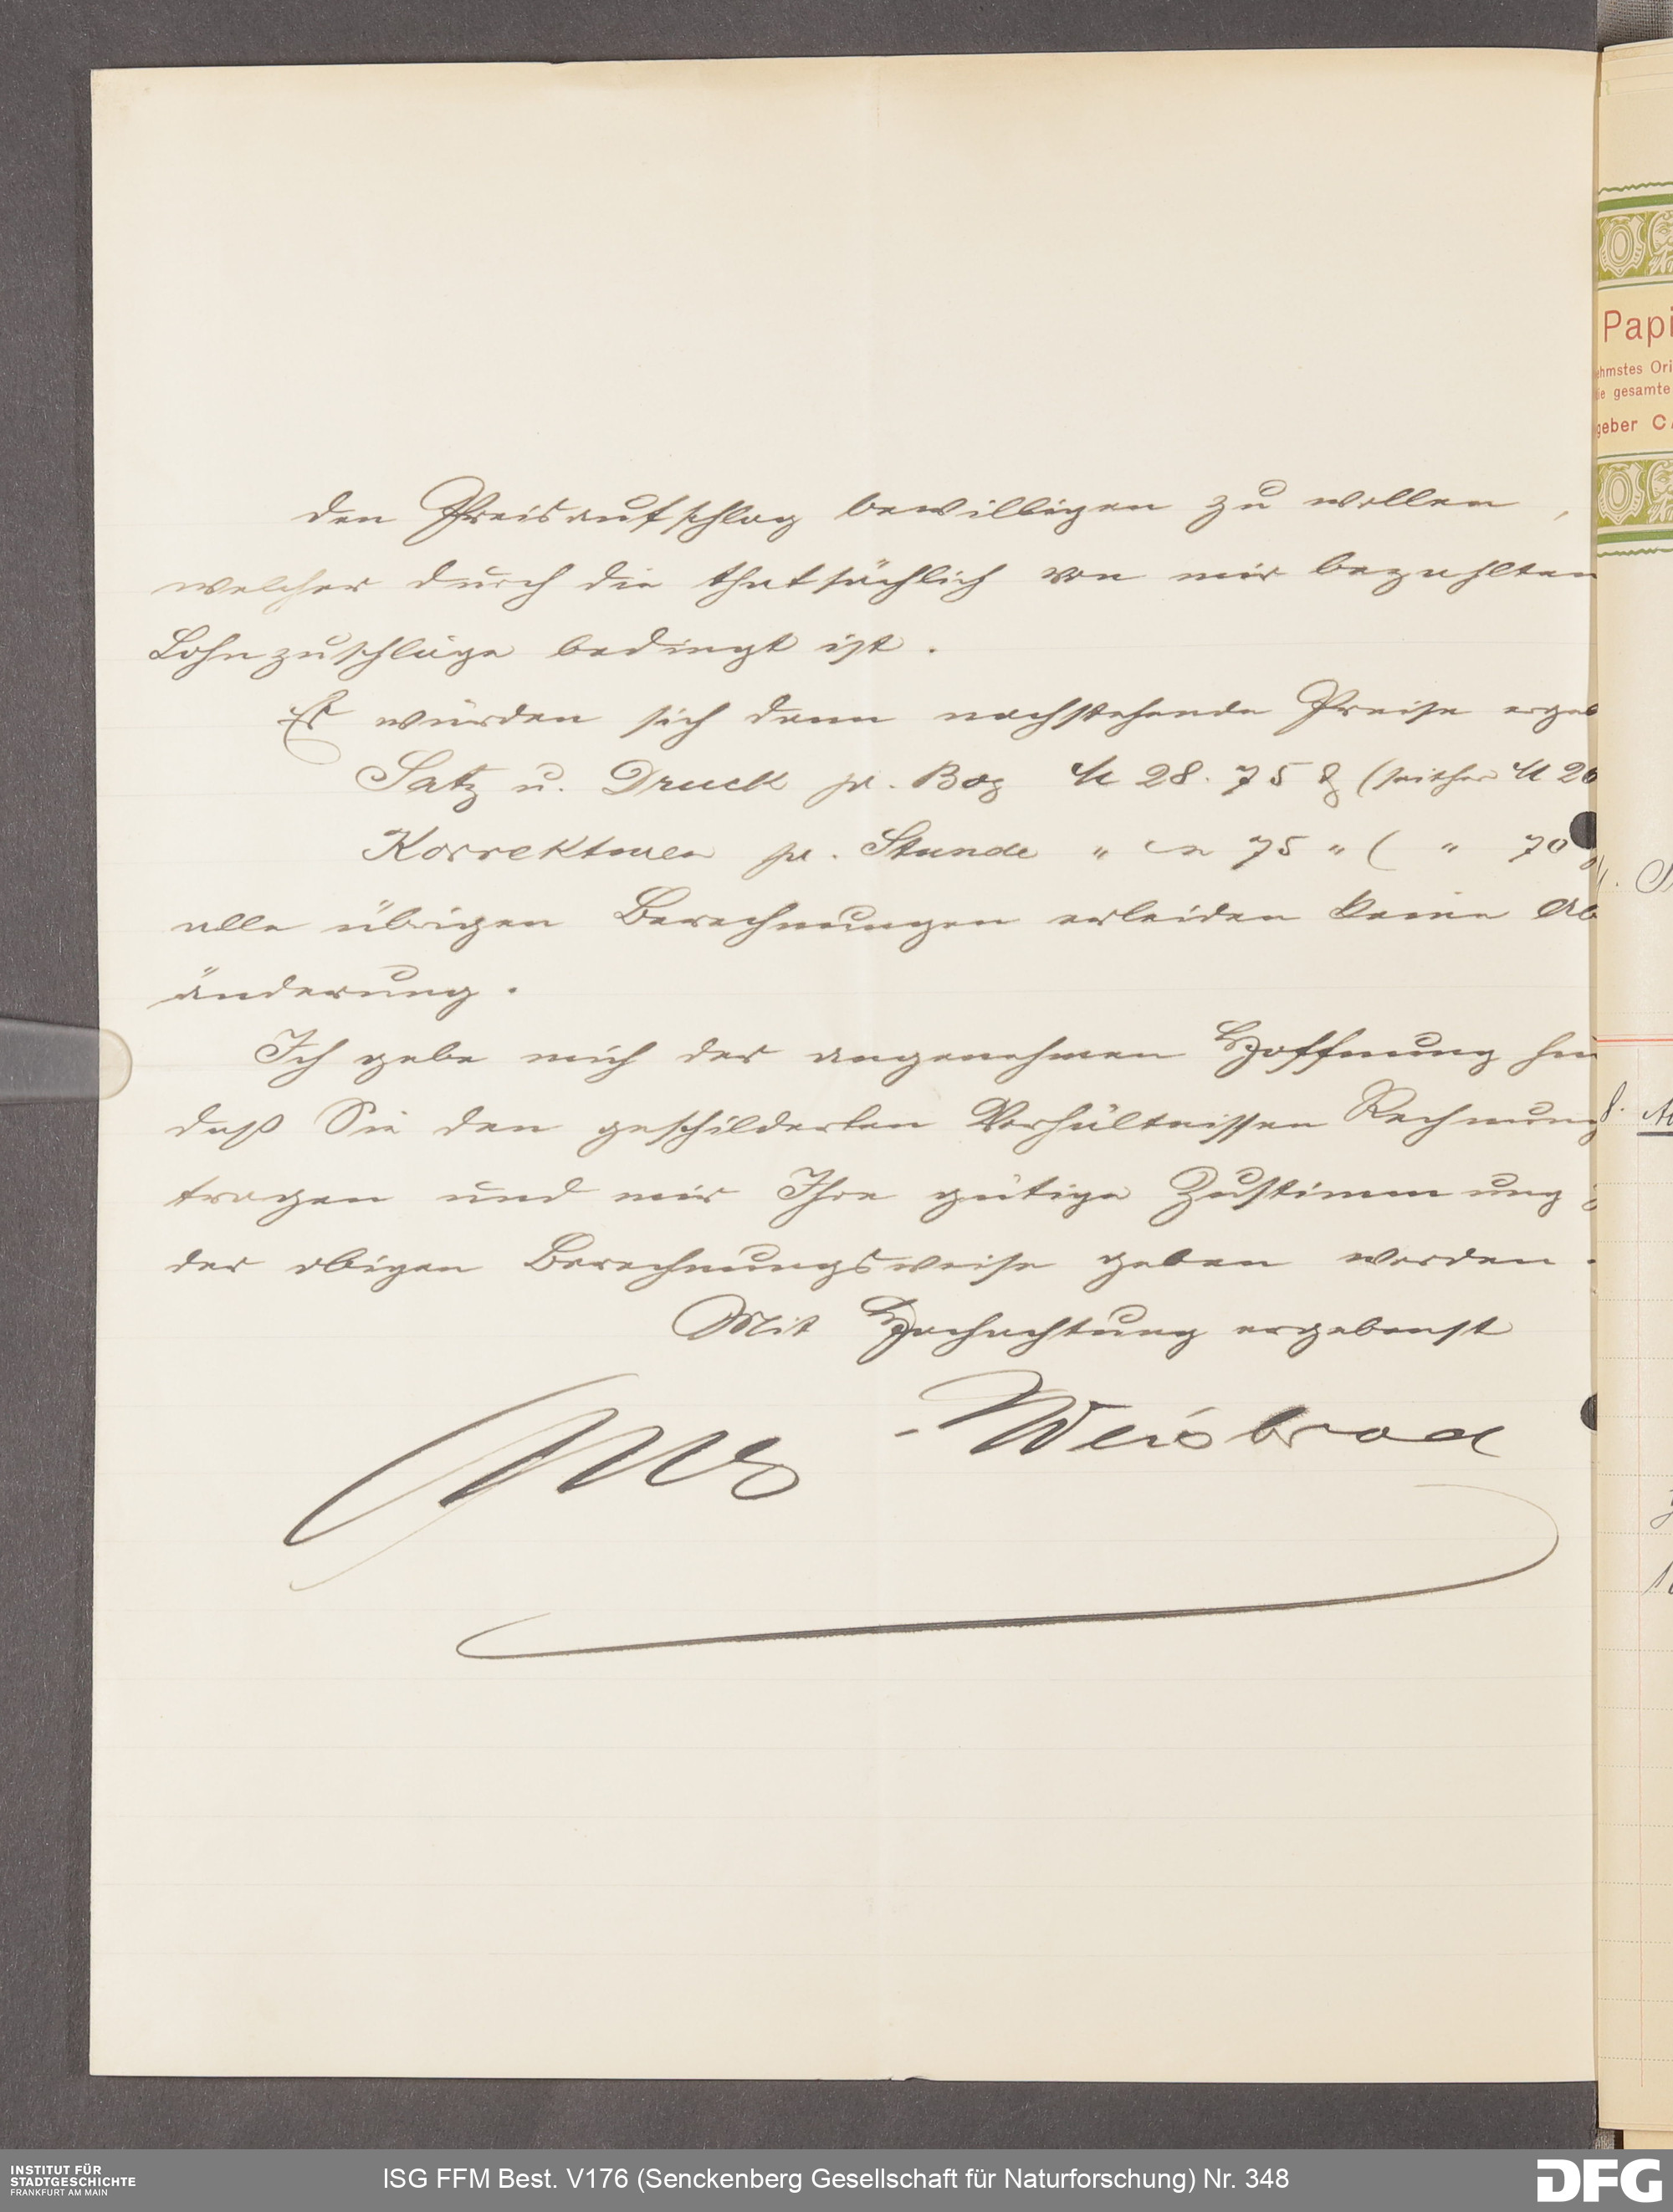 den Preisaufschlag bewilligen zu wollen,
welcher durch die thatsächlich von mir bezahlten
Lohnzuschläge bedingt ist.
Es würden sich dann nachstehende Preise ergeb
Satz u. Druck pr. Bog ℳ 28.75 ₰ (seither ℳ 26
Korrekturen pr. Stunde " – 75 " ( " 70 ₰
alle übrigen Berechnungen erleiden keine Ab
änderung.
Ich gebe mich der angenehmen Hoffnung hin
daß Sie den geschilderten Verhältnissen Rechnung
tragen und mir Ihre gütige Zustimmung z
der obigen Berechnungsweise geben werden.
Mit Hochachtung ergebenst
Weisbrod
Papi
ehmstes Ori
die gesamte
geber CA
INSTITUT FÜR
STADTGESCHICHTE
FRANKFURT AM MAIN
ISG FFM Best. V176 (Senckenberg Gesellschaft für Naturforschung) Nr. 348
DFG